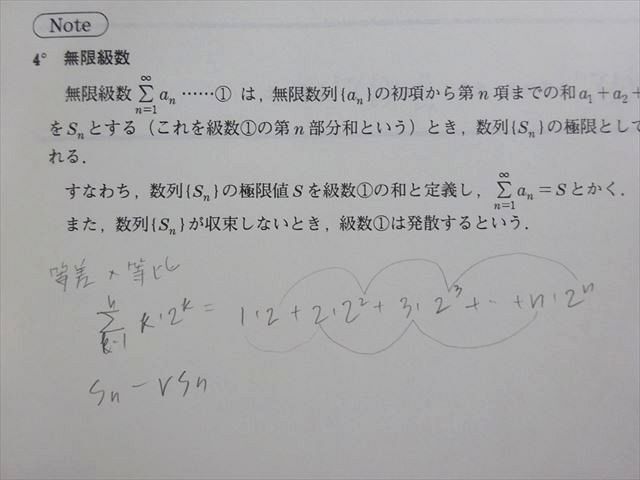 Note
4° 無限級数
無限級数 ∞ Σ n=1 aₙ ……① は，無限数列{aₙ}の初項から第 n 項までの和 a₁+a₂+
を Sₙ とする（これを級数①の第 n 部分和という）とき，数列{Sₙ}の極限として
れる．
すなわち，数列{Sₙ}の極限値 S を級数①の和と定義し， ∞ Σ n=1 aₙ = S とかく．
また，数列{Sₙ}が収束しないとき，級数①は発散するという．
等差×等比
n Σ k=1 k・2ᵏ = 1・2 + 2・2² + 3・2³ + ‥ + n・2ⁿ
Sₙ − rSₙ